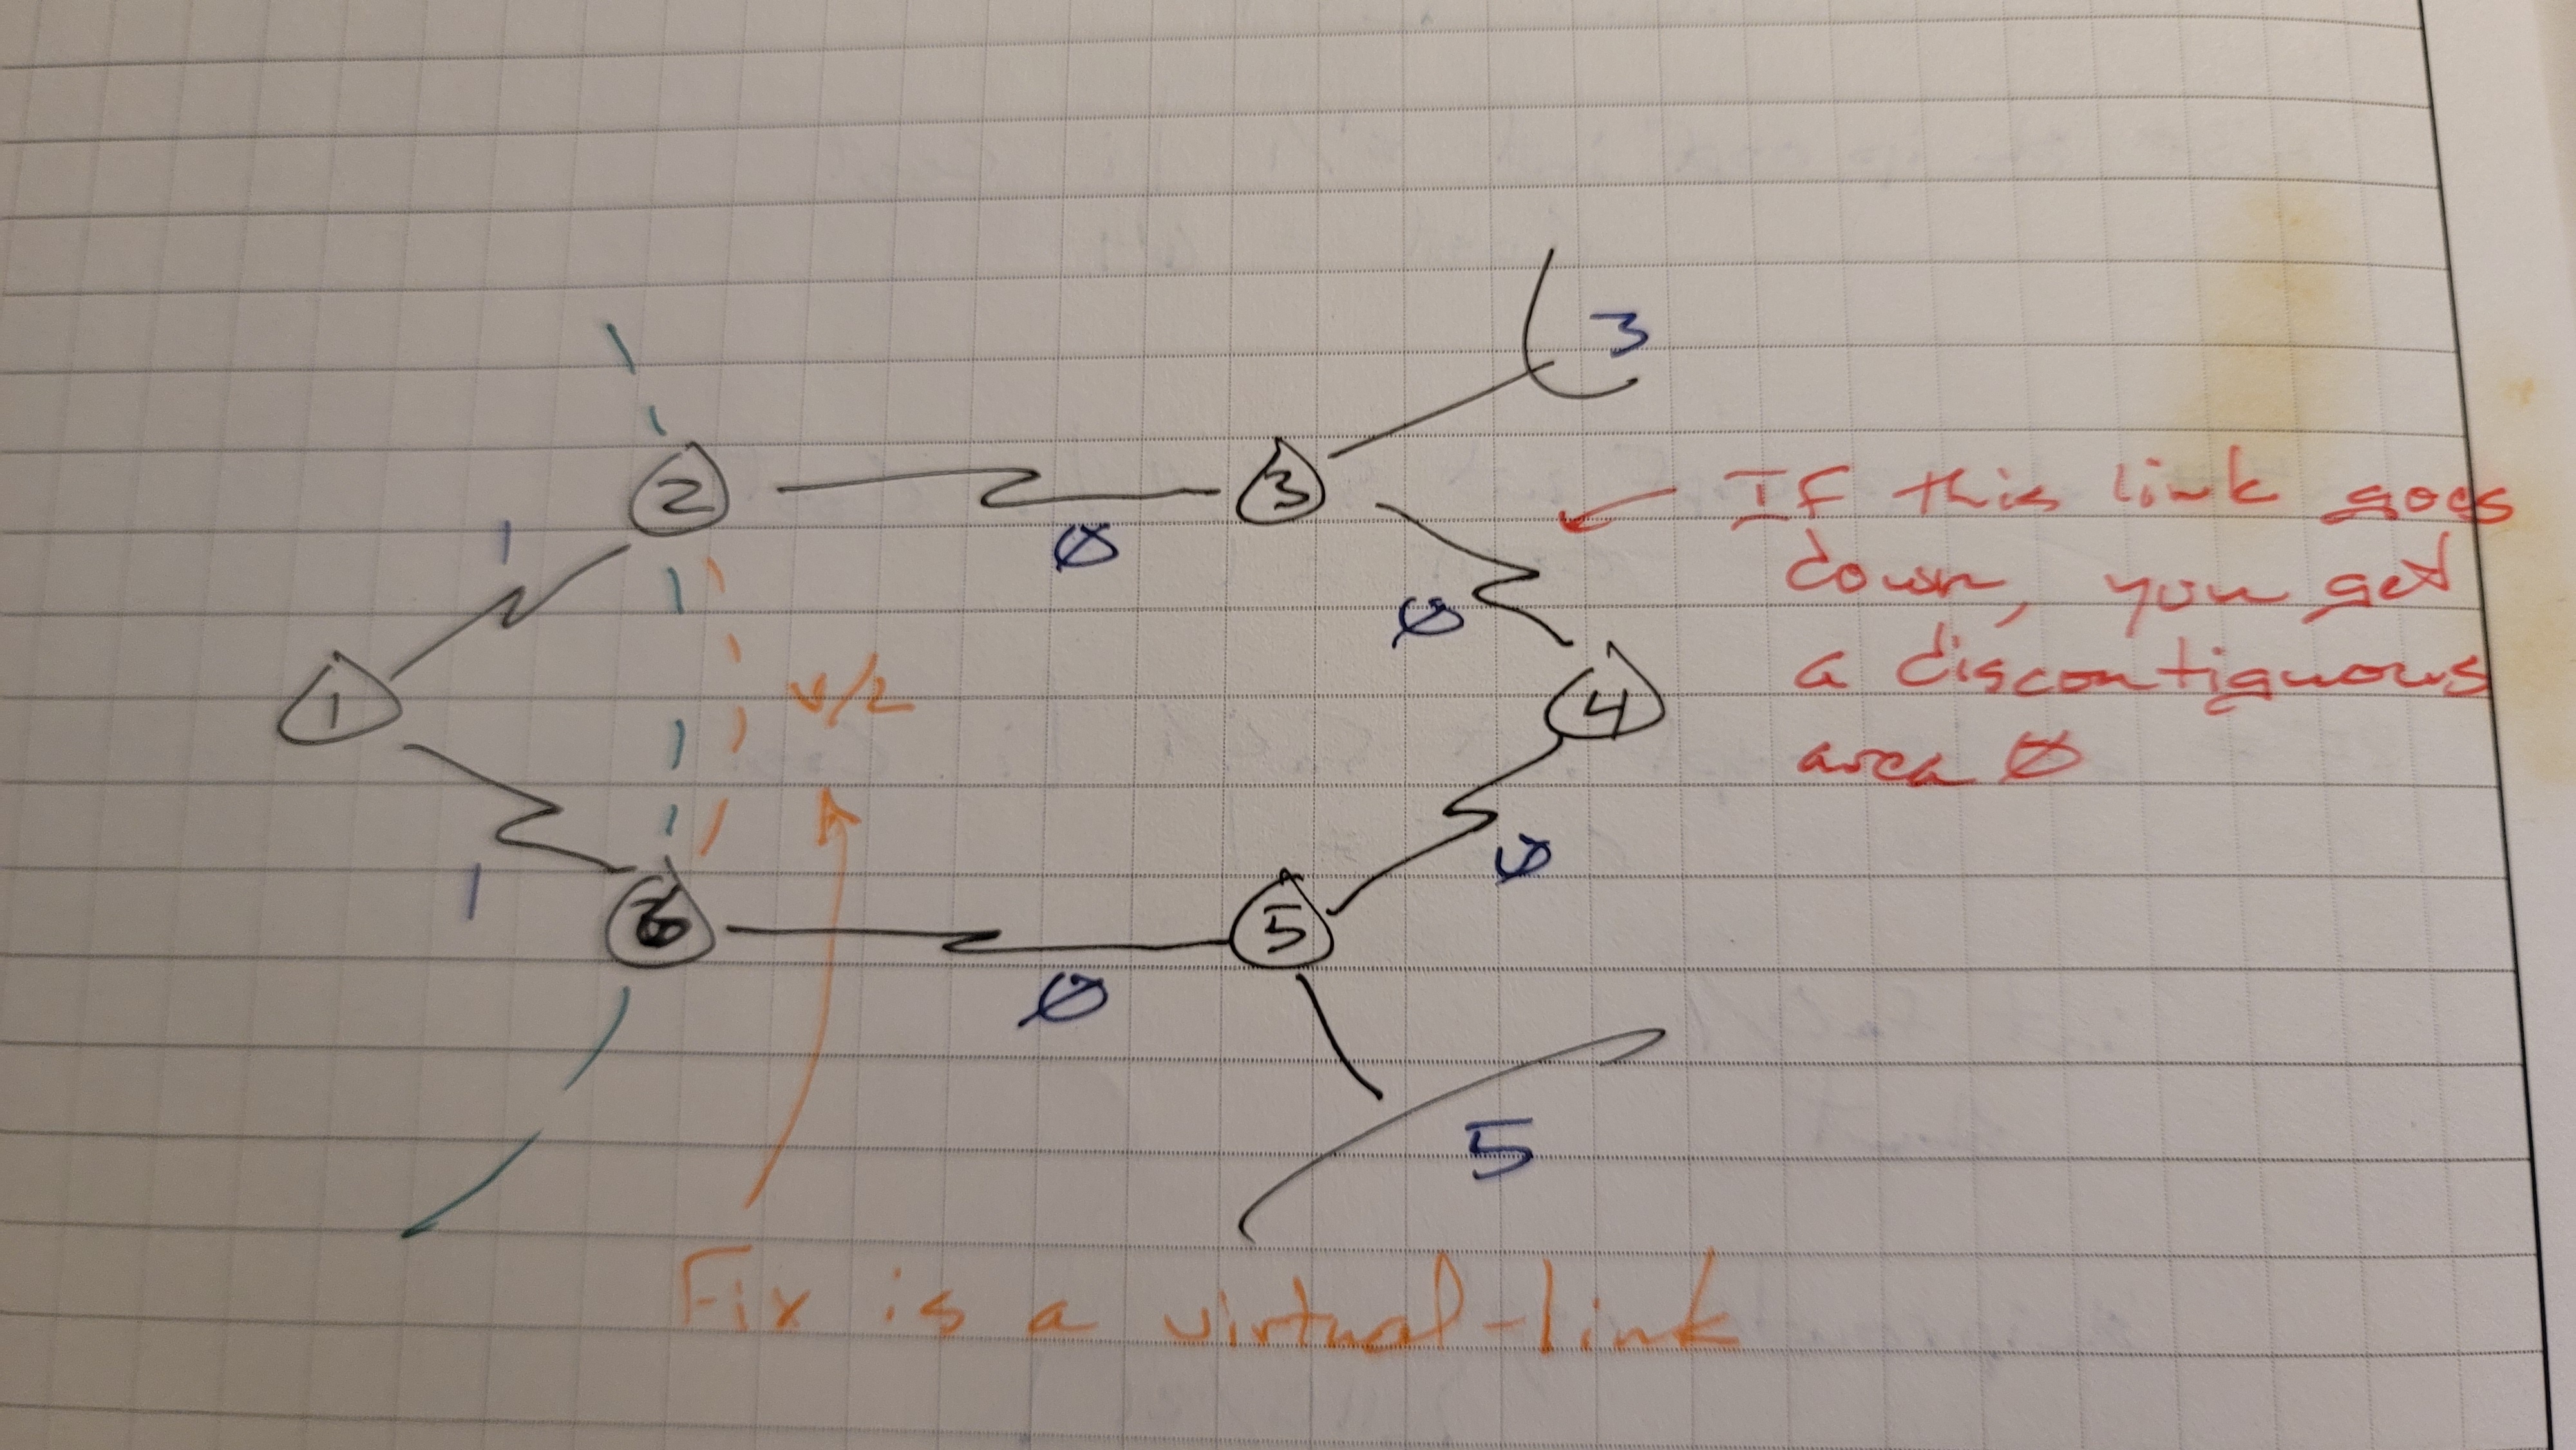 3
2
3
If this link goes
1
Ø
down, you get
Ø
a discontiguous
1
v/L
4
area Ø
Ø
1
6
5
Ø
5
Fix is a virtual-link